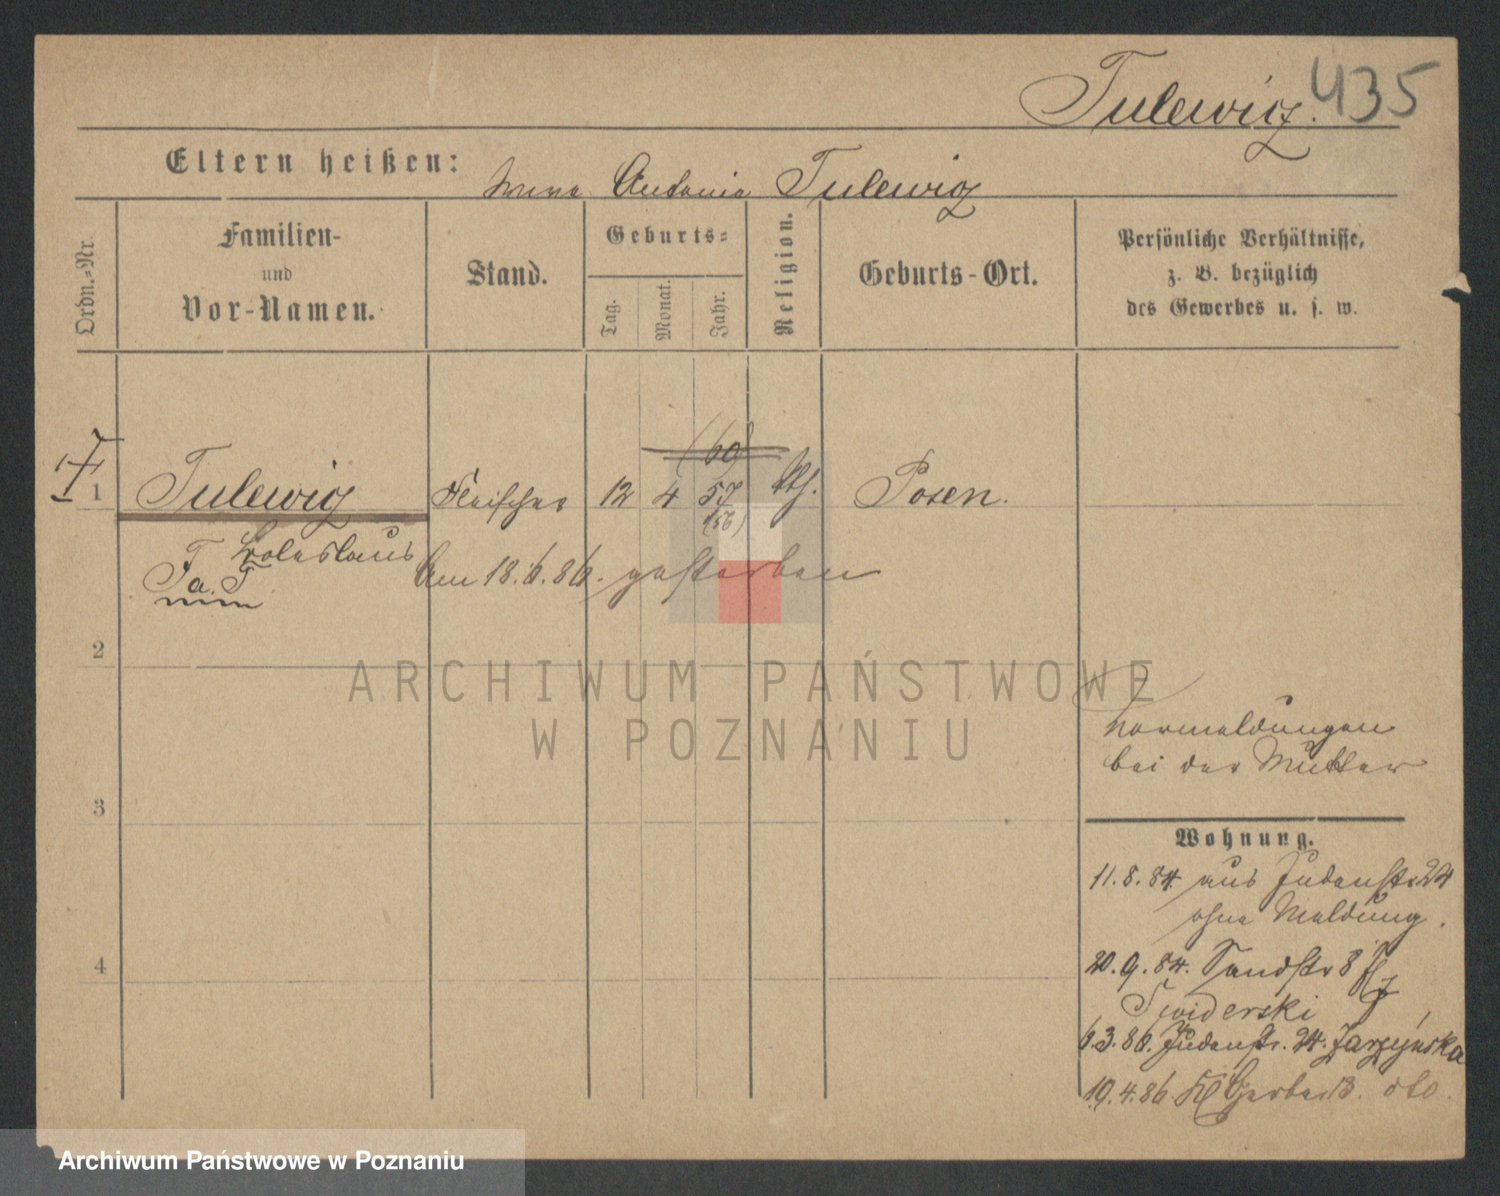 Tulewicz. 435
Eltern heißen: Antonia Tulewicz
Ordn.-Nr.
Familien-
und
Vor-Namen.
Stand.
Geburts-
Tag.
Monat.
Jahr.
Religion.
Geburts-Ort.
Persönliche Verhältnisse,
z. B. bezüglich
des Gewerbes u. s. w.
(60)
1 Tulewicz Fleischer 12 4 57 kth. Posen.
(56)
Boleslaus
Am 18.6.86. gestorben
T. a. T.
2
ARCHIWUM PAŃSTWOWE
W POZNANIU
Vormeldungen
bei der Mutter
3
Wohnung.
11.8.84. aus Judenstr 24
ohne Meldung.
4
20.9.84. Sandstr 8
Swiderski
6.3.86. Judenstr. 24. Jarzyńska
19.4.86. Kl Gerberstr. dto.
Archiwum Państwowe w Poznaniu